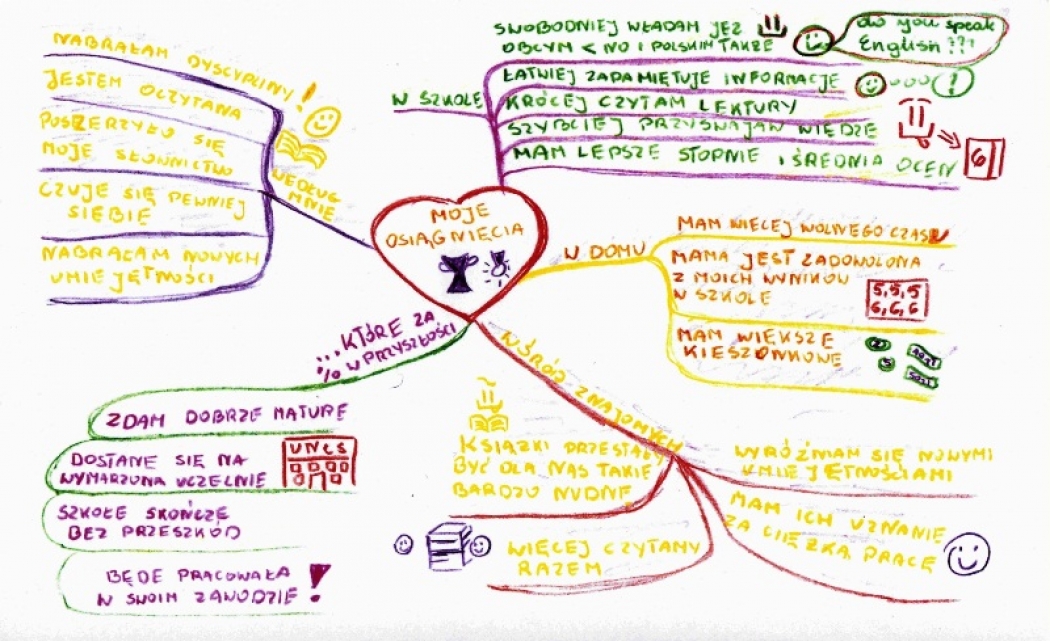 MOJE
OSIĄGNIĘCIA
W SZKOLE
SWOBODNIEJ WŁADAM JĘZ
OBCYM < NO I POLSKIM TAKŻE
do you speak
English ??!
ŁATWIEJ ZAPAMIĘTUJĘ INFORMACJE
!
KRÓCEJ CZYTAM LEKTURY
SZYBCIEJ PRZYSWAJAM WIEDZE
MAM LEPSZE STOPNIE I ŚREDNIA OCEN
6
W DOMU
MAM WIECEJ WOLNEGO CZASU
MAMA JEST ZADOWOLONA
Z MOICH WYNIKÓW
W SZKOLE
5,5,5
6,6,6
MAM WIĘKSZE
KIESZONKOWE
WŚRÓD ZNAJOMYCH
WYRÓŻNIAM SIĘ NOWYMI
UMIEJĘTNOŚCIAMI
MAM ICH UZNANIE
ZA CIĘŻKĄ PRACĘ
WIĘCEJ CZYTAMY
RAZEM
KSIĄŻKI PRZESTAŁY
BYĆ DLA NAS TAKIE
BARDZO NUDNE
...KTÓRE ZA
W PRZYSZŁOŚCI
ZDAM DOBRZE MATURĘ
DOSTANE SIĘ NA
WYMARZONA UCZELNIE
SZKOŁE SKOŃCZE
BEZ PRZESZKÓD
BĘDE PRACOWAŁA
W SWOIM ZAWODZIE !
WEDŁUG
MNIE
NABRAŁAM DYSCYPLINY !
JESTEM OCZYTANA
POSZERZYŁO SIĘ
MOJE SŁOWNICTWO
CZUJE SIĘ PEWNIEJ
SIEBIE
NABRAŁAM NOWYCH
UMIEJĘTNOŚCI